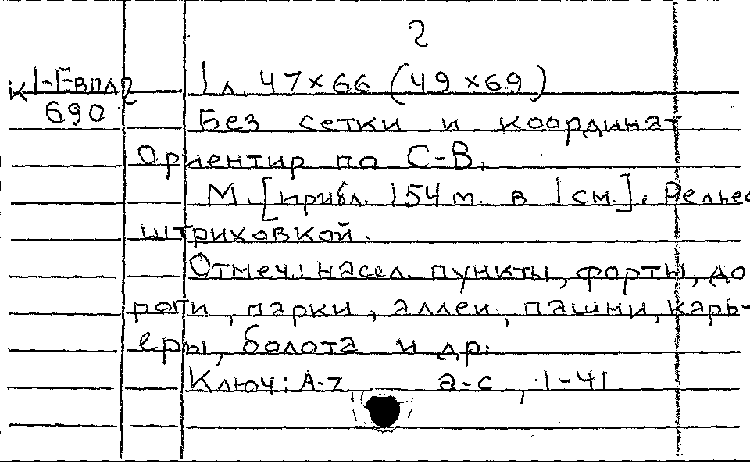 2
К 1-Евпл2
690
1 л. 47×66 (49×69)
Без сетки и координат
Ориентир по С-В.
М. [прибл. 154 м. в 1 см.]. Рельеф
штриховкой.
Отмеч.: насел. пункты, форты, до
роги, парки, аллеи, пашни, карь-
еры, болота и др.
Ключ: А-Z, a-c, 1-41